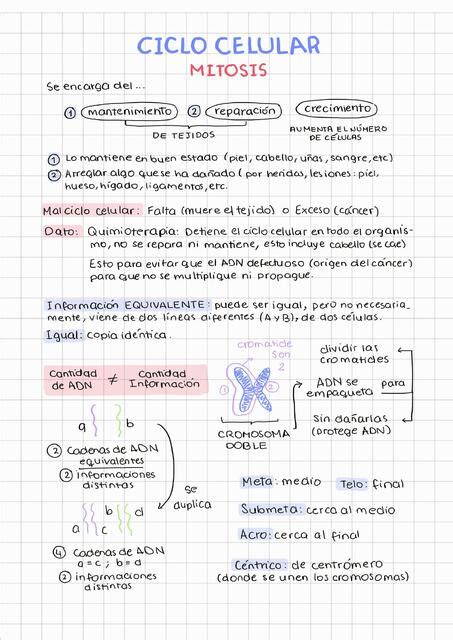 CICLO CELULAR
MITOSIS
Se encarga del...
① mantenimiento ② reparación crecimiento
DE TEJIDOS
AUMENTA EL NÚMERO
DE CÉLULAS
① Lo mantiene en buen estado (piel, cabello, uñas, sangre, etc)
② Arreglar algo que se ha dañado (por heridas, lesiones: piel,
hueso, hígado, ligamentos, etc.
Mal ciclo celular: Falta (muere el tejido) o Exceso (cáncer)
Dato: Quimioterapia: Detiene el ciclo celular en todo el organis-
mo, no se repara ni mantiene, esto incluye cabello (se cae)
Esto para evitar que el ADN defectuoso (origen del cáncer)
para que no se multiplique ni propague.
Información EQUIVALENTE: puede ser igual, pero no necesaria-
mente, viene de dos líneas diferentes (A y B), de dos células.
Igual: Copia idéntica.
Cantidad
de ADN ≠ Cantidad
Información
a b
② Cadenas de ADN
equivalentes
② informaciones
distintas
se
duplica
a b c d
④ Cadenas de ADN
a = c ; b = d
② informaciones
distintas
cromatide
son
2
① ②
CROMOSOMA
DOBLE
dividir las
cromatides
ADN se
empaqueta para
Sin dañarlas
(protege ADN)
Meta: medio Telo: final
Submeta: cerca al medio
Acro: cerca al final
Céntrico: de centrómero
(donde se unen los cromosomas)